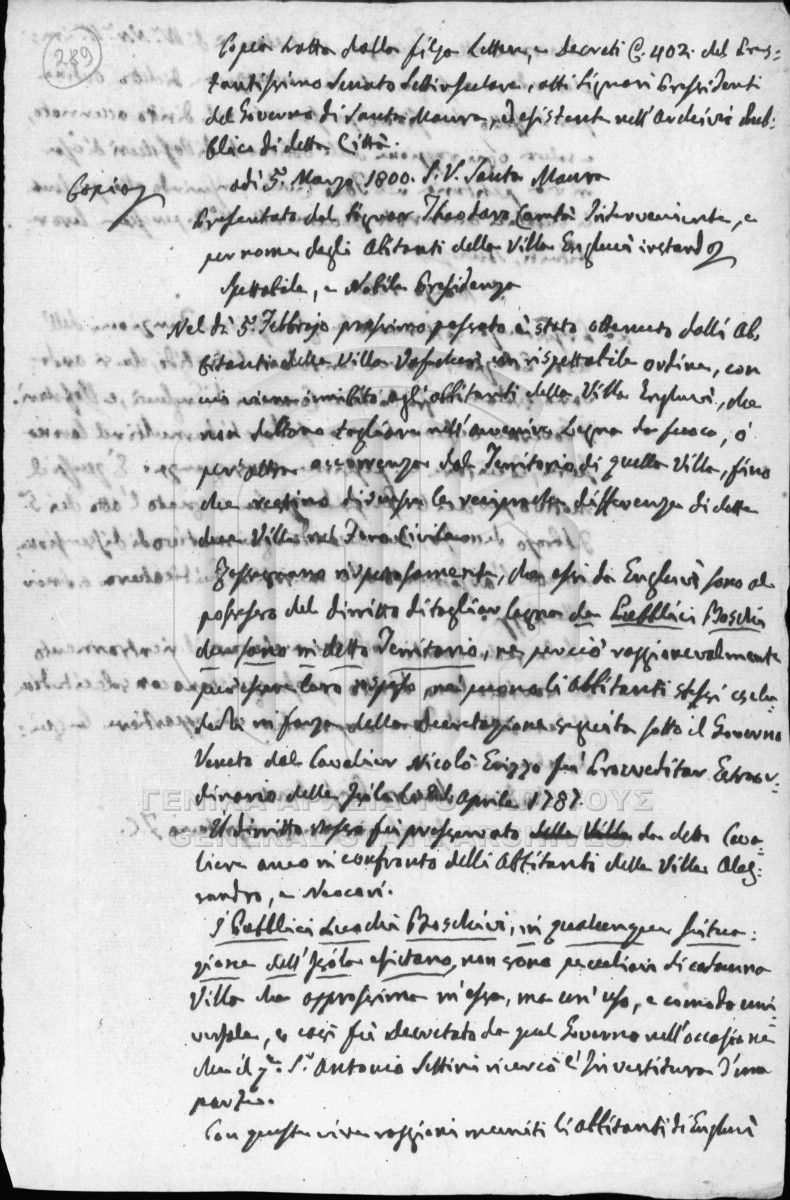 289
Copia tratta dalla filza Lettere, e Decreti C. 402. del Pres-
tantissimo Senato Settinsulare, atti Signori Pressidenti
del Governo di Santa Maura, esistente nell'Archivio Pub-
blico di detta Città.
adi 5. Marzo 1800. S.V. Santa Maura
Copia
Presentata dal Signor Theodoro Interveniente, e
per nome degli Abitanti della Villa Engluvi instando
Spettabile, e Nobile Pressidenza
Nel dì 5. Febbrajo prossimo passato è stato ottenuto dalli Ab-
bitanti della Villa Vafcheri un rispettabile ordine, con
cui viene innibito agl'abbitanti della Villa Engluvi, che
non debbano tagliare nell'avvenire Legna da fuoco, o
per altra occorrenza dal Territorio di quella Villa, fino
che restino le reciproche differenze di dette
due Ville nel Foro Civile
rispettosamente, che essi da Engluvi sono al
possesso del diritto di tagliar legna da Pubblici Boschi
che sono in detto Territorio, ne perciò raggionevolmente
può essere loro ne ponno li Abbitanti stessi esclu-
derli in forza della Decretazione seguita sotto il Governo
Veneto dal Cavalier Nicolò Erizzo fu Proveditor Estraor-
dinario delle Isole Aprile 1787.
ΓΕΝΙΚΑ ΑΡΧΕΙΑ ΤΟΥ ΚΡΑΤΟΥΣ
GENERAL STATE ARCHIVES
Il diritto stesso fu preservato della Villa da detto Cava-
liere anco in confronto delli Abbitanti della Villa Ales-
sandro, e Neocori.
I Pubblici Luochi Boschivi, in qualunque situa-
zione dell'Isola esistano, non sono peculiari di cadauna
Villa che approssima in essa, ma un'uso, e comodo uni-
versale, e così fu decretato da quel Governo nell'occasione
che il q. S. Antonio Settini ricercò l'Investitura d'una
porzione.
Con queste vive raggioni muniti li abbitanti di Engluvi